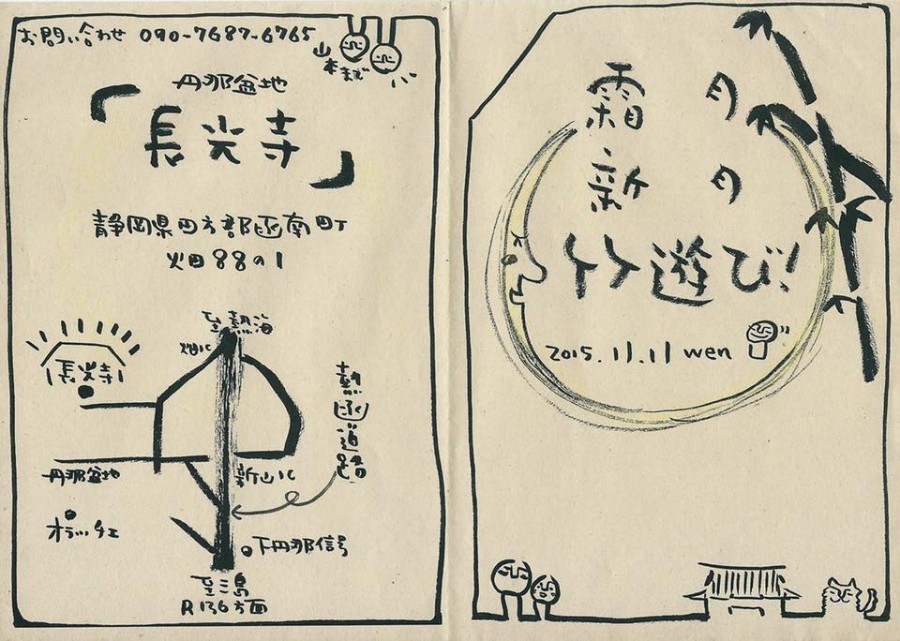 お問い合わせ 090-7687-6765
山本まで
丹那盆地
「長光寺」
静岡県田方郡函南町
畑88の1
至熱海
畑IC
長光寺
熱函道路
丹那盆地
オラッチェ
下丹那信号
至三島
R136方面
霜月
新月
竹遊び!
2015.11.11 wen